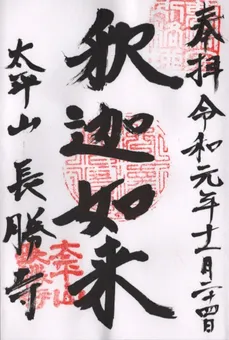 奉拝
令和元年十一月二十四日
釈迦如来
太平山
長勝寺